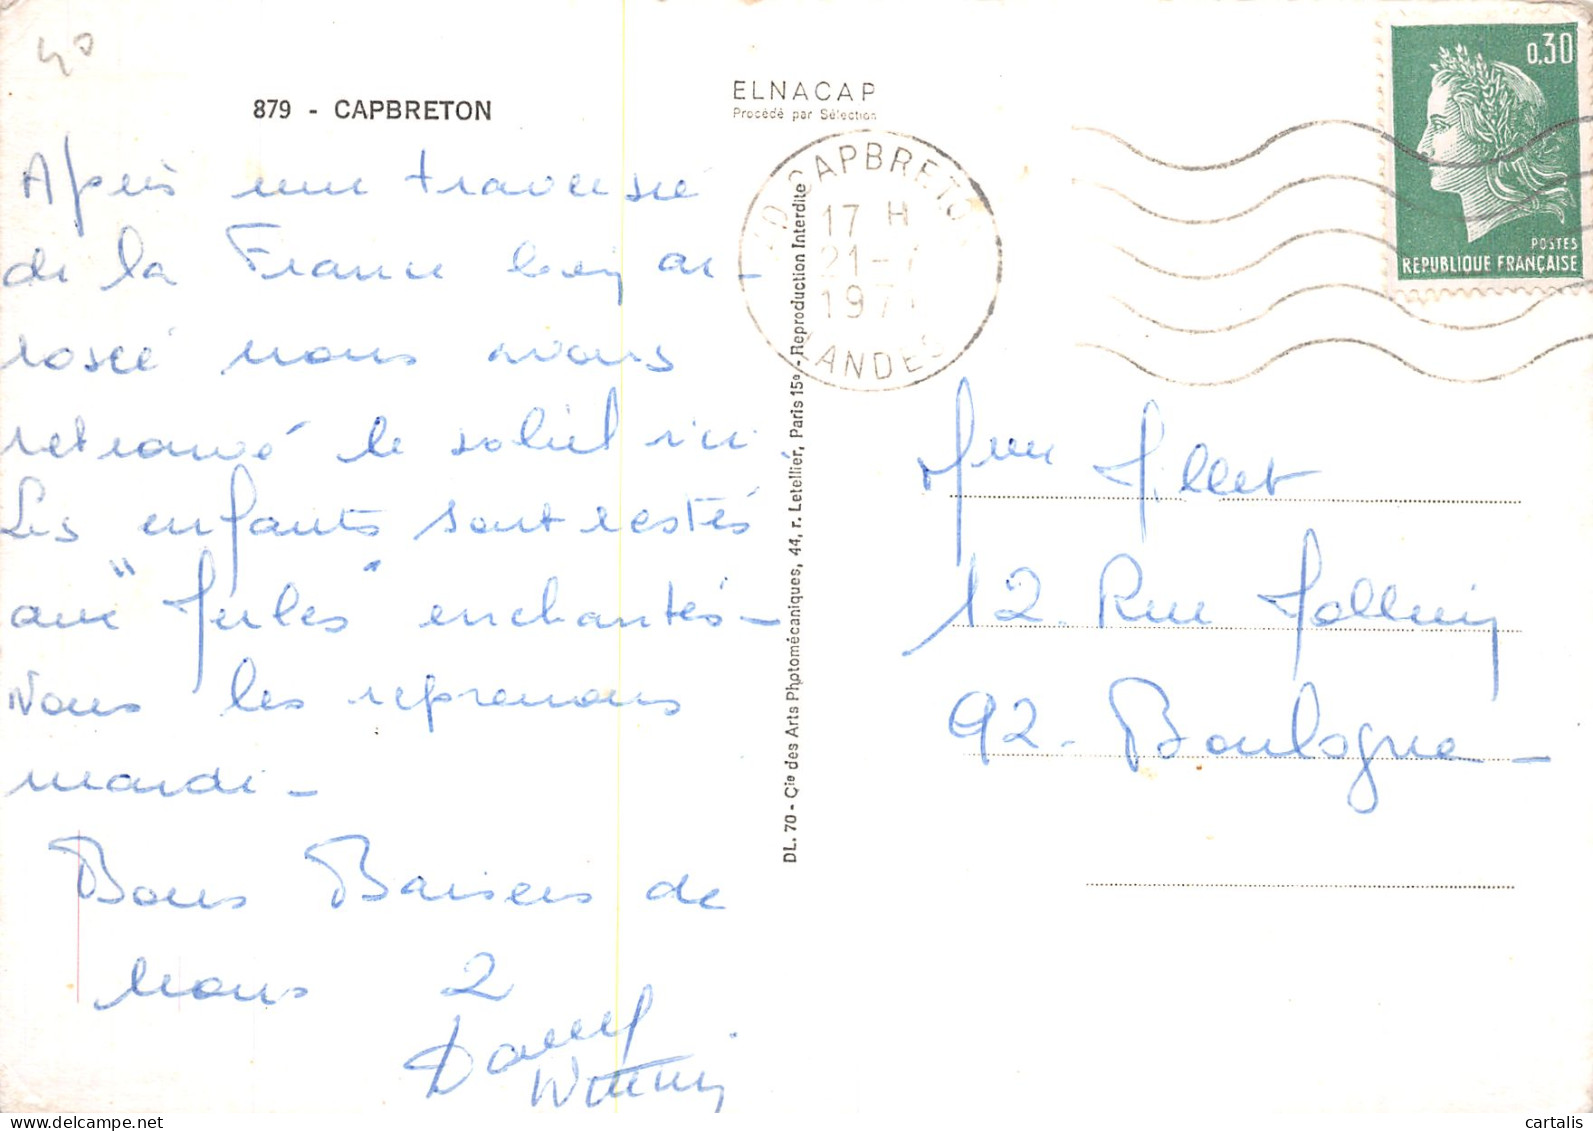 40
879 - CAPBRETON
ELNACAP
Procédé par Sélection
Après une traversée
de la France bien ar-
rosée nous avons
retrouvé le soleil ici
Les enfants sont restés
aux " " enchantés-
Nous les reprenons
mardi-
Bons Baisers de
Nous 2
CAPBRETON
17 H
21-7
197
LANDES
0,30
POSTES
REPUBLIQUE FRANÇAISE
DL. 70 - Cie des Arts Photomécaniques, 44, r. Letellier, Paris 15e - Reproduction Interdite
Mme Millet
12. Rue
92- Boulogne-
cartalis
delcampe.net